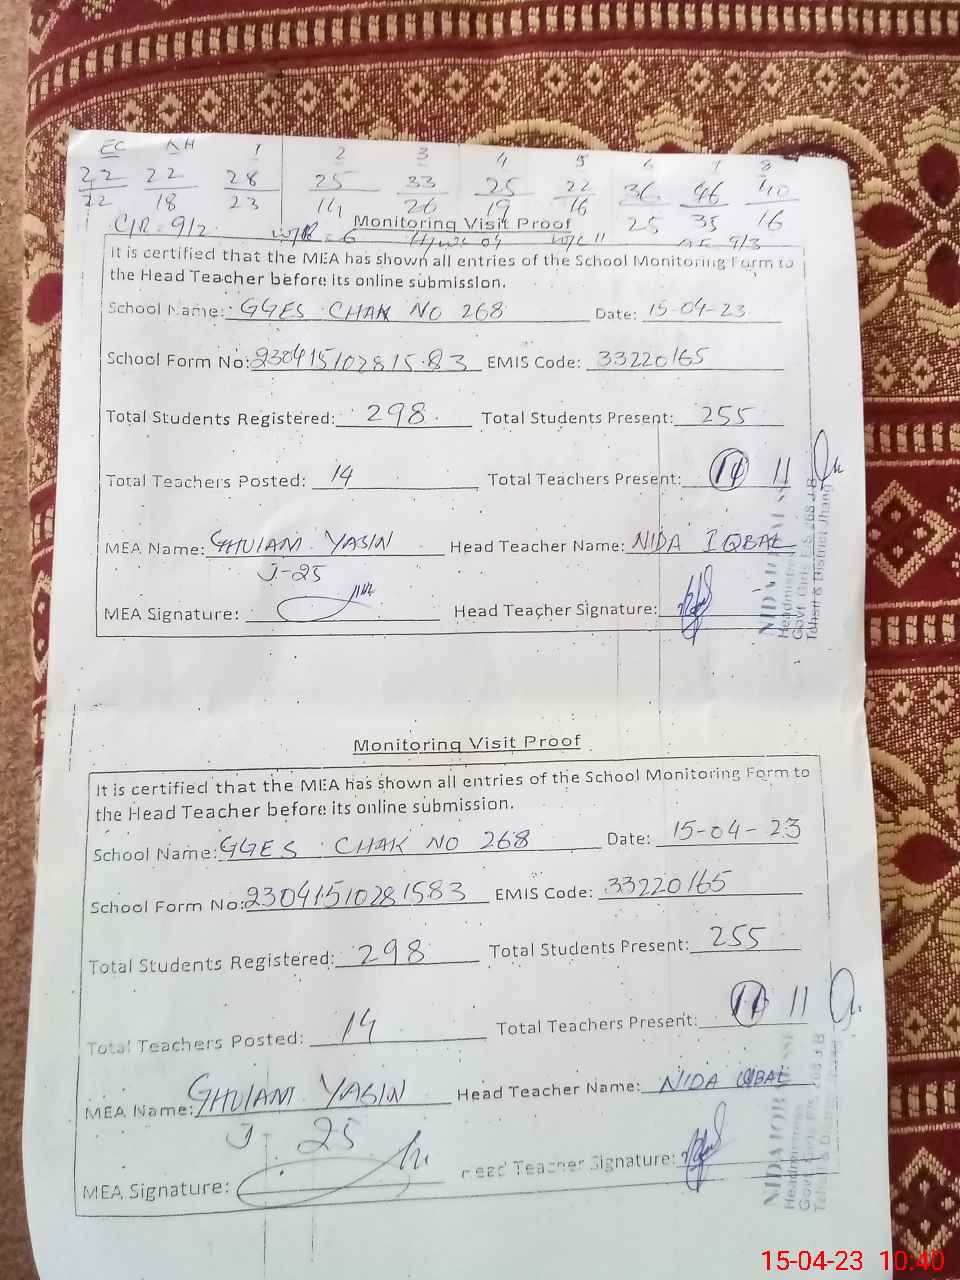 EC KH 1 2 3 4 5 6 7 8
22 22 28 25 33 25 22 36 46 40
22 18 23 14 26 19 16 25 35 16
C/R = 9/2
Monitoring Visit Proof
It is certified that the MEA has shown all entries of the School Monitoring Form to
the Head Teacher before its online submission.
School Name: GGES CHAK NO 268 Date: 15-04-23
School Form No: 23041510281583 EMIS Code: 33220165
Total Students Registered: 298 Total Students Present: 255
Total Teachers Posted: 14 Total Teachers Present: 11
MEA Name: GHULAM YASIN Head Teacher Name: NIDA IQBAL
J-25
MEA Signature: Head Teacher Signature:
NIDA IQBAL
Headmistress
Govt. Girls E/S 268 J.B
Tehsil & District Jhang
Monitoring Visit Proof
It is certified that the MEA has shown all entries of the School Monitoring Form to
the Head Teacher before its online submission.
School Name: GGES CHAK NO 268 Date: 15-04-23
School Form No: 23041510281583 EMIS Code: 33220165
Total Students Registered: 298 Total Students Present: 255
Total Teachers Posted: 14 Total Teachers Present: 11
MEA Name: GHULAM YASIN Head Teacher Name: NIDA IQBAL
J-25
MEA Signature: Head Teacher Signature:
NIDA IQBAL
Headmistress
15-04-23 10:40